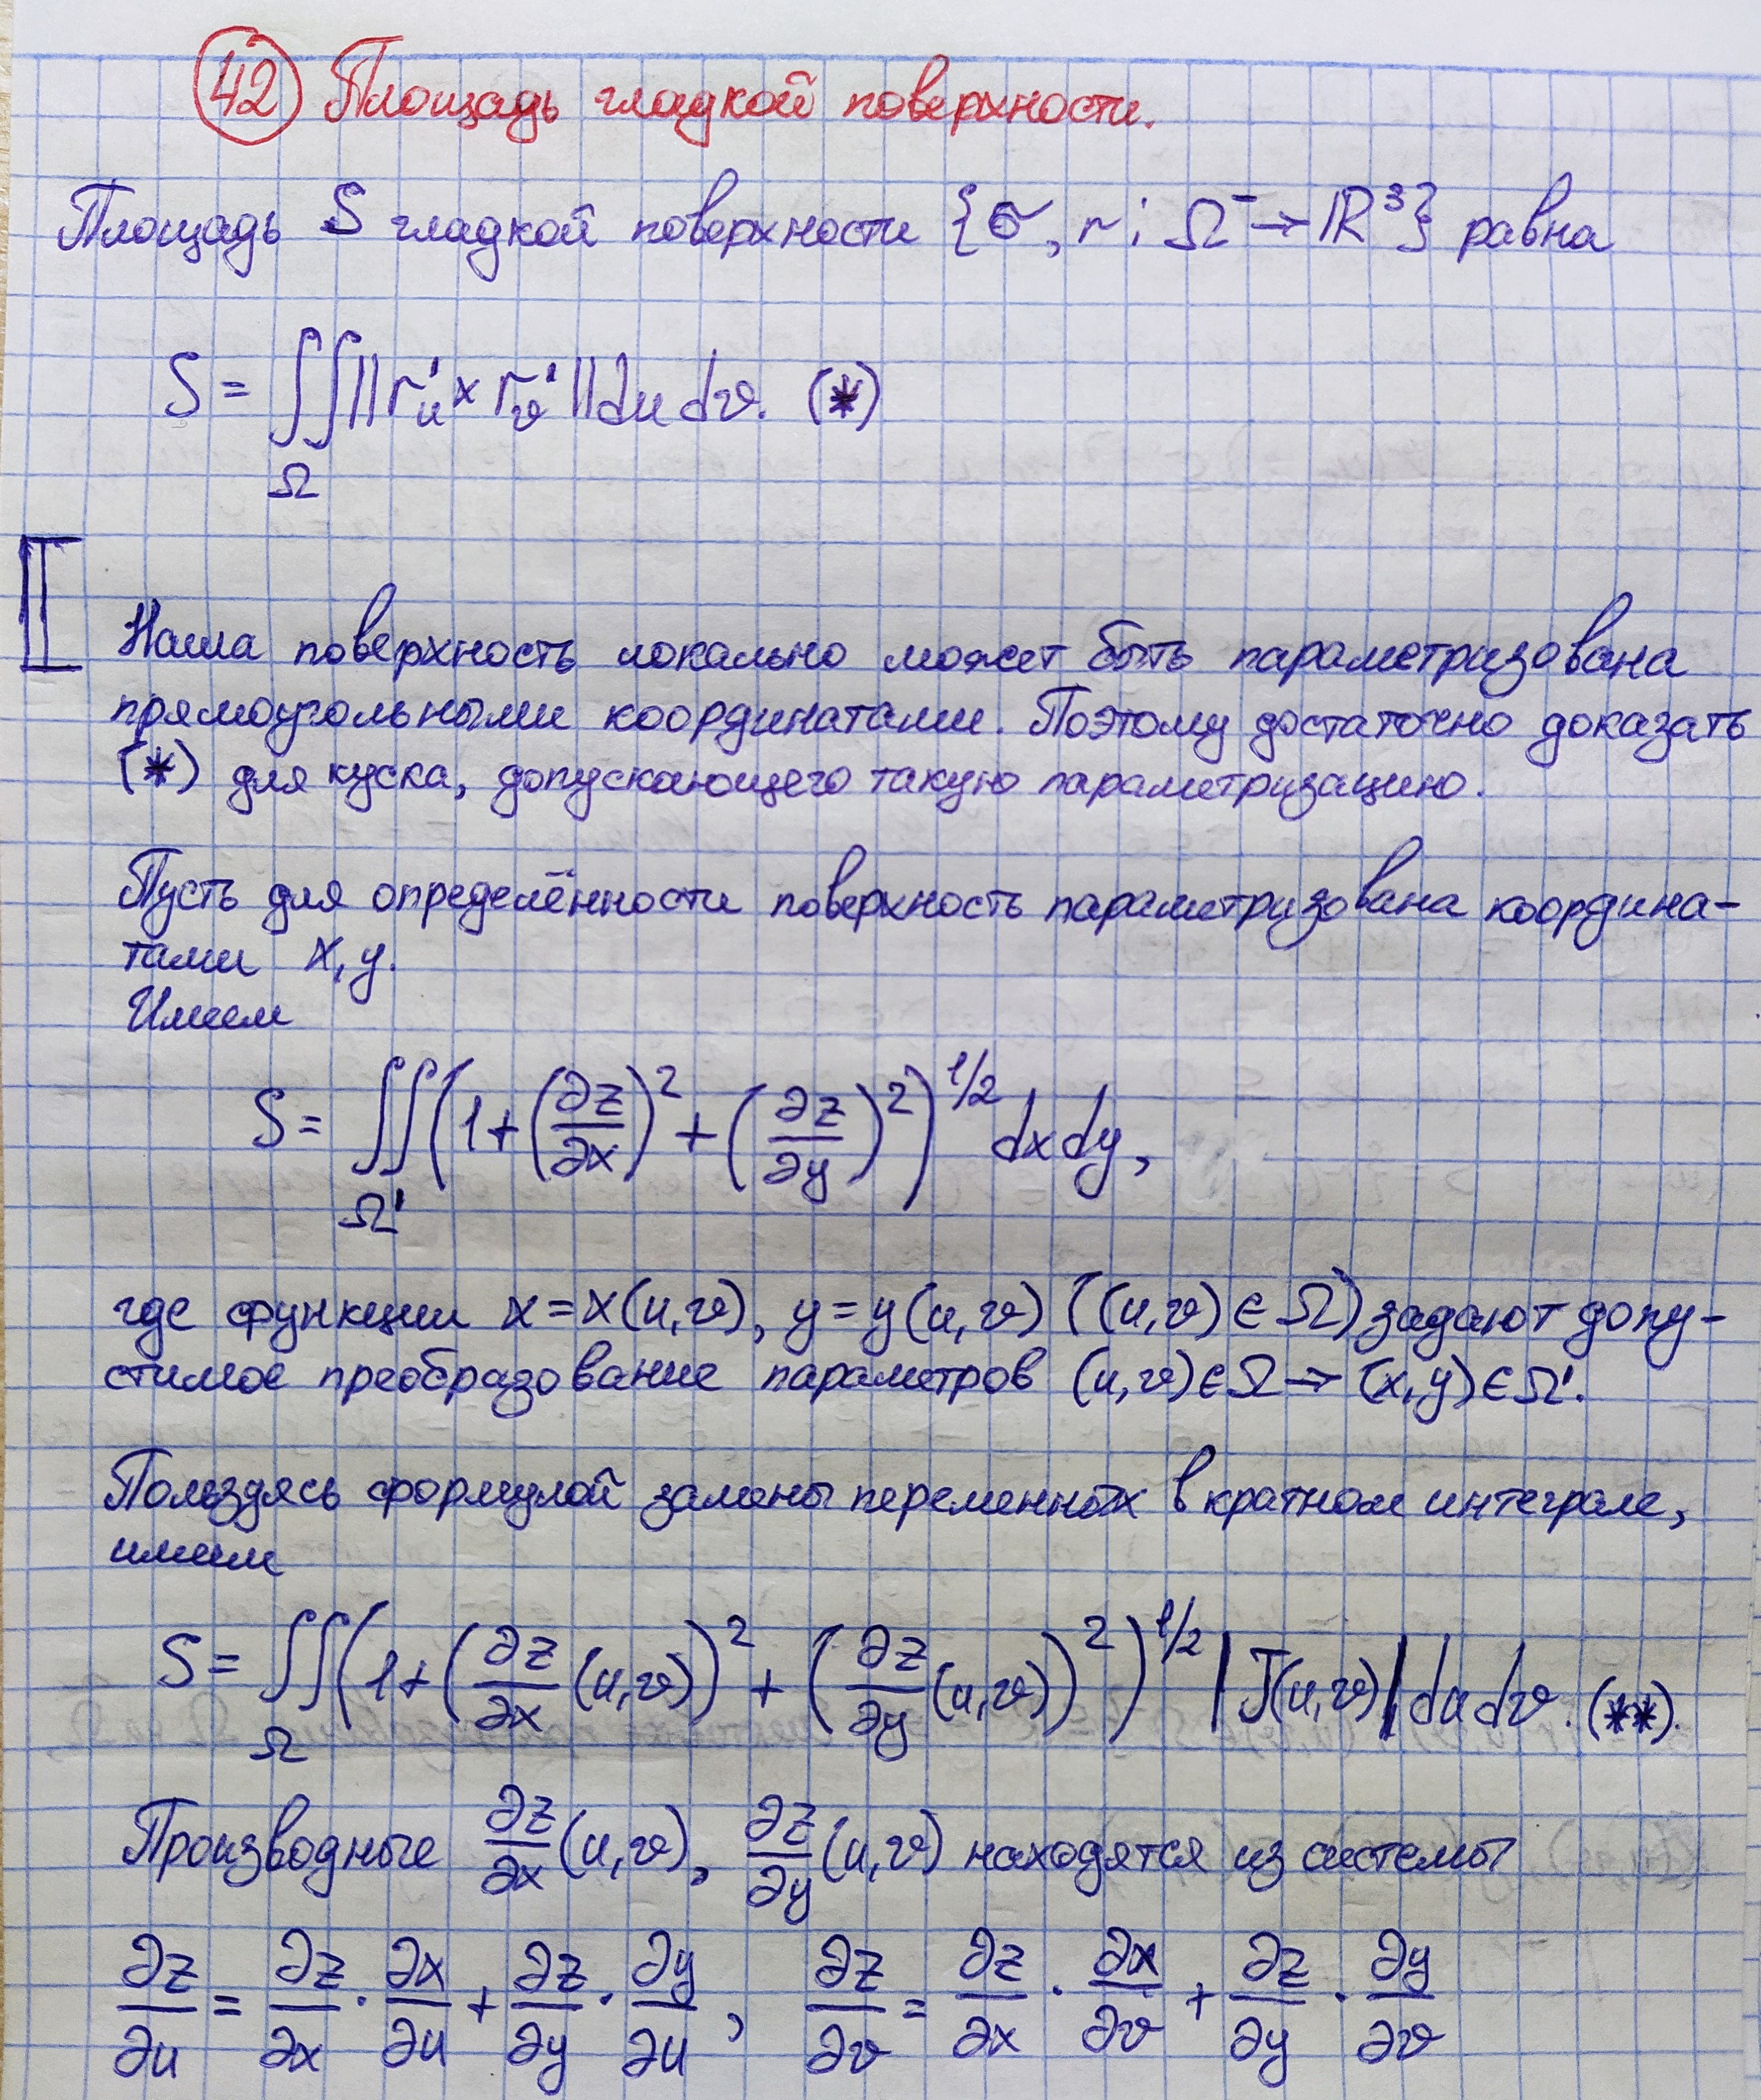 42 Площадь гладкой поверхности.
Площадь S гладкой поверхности {σ, r: Ω̄ → ℝ³} равна
S = ∬_Ω ||r'_u × r'_v|| du dv. (*)
Наша поверхность локально может быть параметризована
прямоугольными координатами. Поэтому достаточно доказать
(*) для куска, допускающего такую параметризацию.
Пусть для определённости поверхность параметризована координа-
тами x, y.
Имеем
S = ∬_Ω' (1 + (∂z/∂x)² + (∂z/∂y)²)^{1/2} dx dy,
где функции x = x(u,v), y = y(u,v) ((u,v) ∈ Ω) задают допу-
стимое преобразование параметров (u,v) ∈ Ω → (x,y) ∈ Ω'.
Пользуясь формулой замены переменных в кратном интеграле,
имеем
S = ∬_Ω (1 + (∂z/∂x (u,v))² + (∂z/∂y (u,v))²)^{1/2} |J(u,v)| du dv. (**).
Производные ∂z/∂x (u,v), ∂z/∂y (u,v) находятся из системы
∂z/∂u = ∂z/∂x · ∂x/∂u + ∂z/∂y · ∂y/∂u, ∂z/∂v = ∂z/∂x · ∂x/∂v + ∂z/∂y · ∂y/∂v